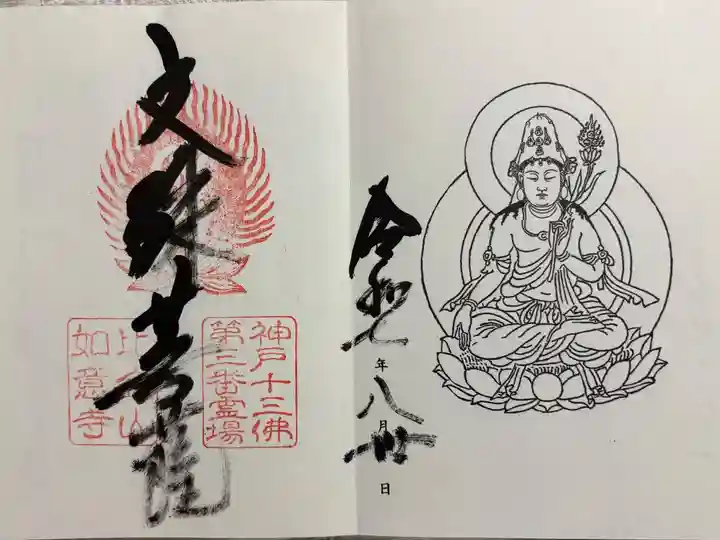 令和七年八月 日
神戸十三佛
第三番霊場
文殊菩薩
比金山
如意寺